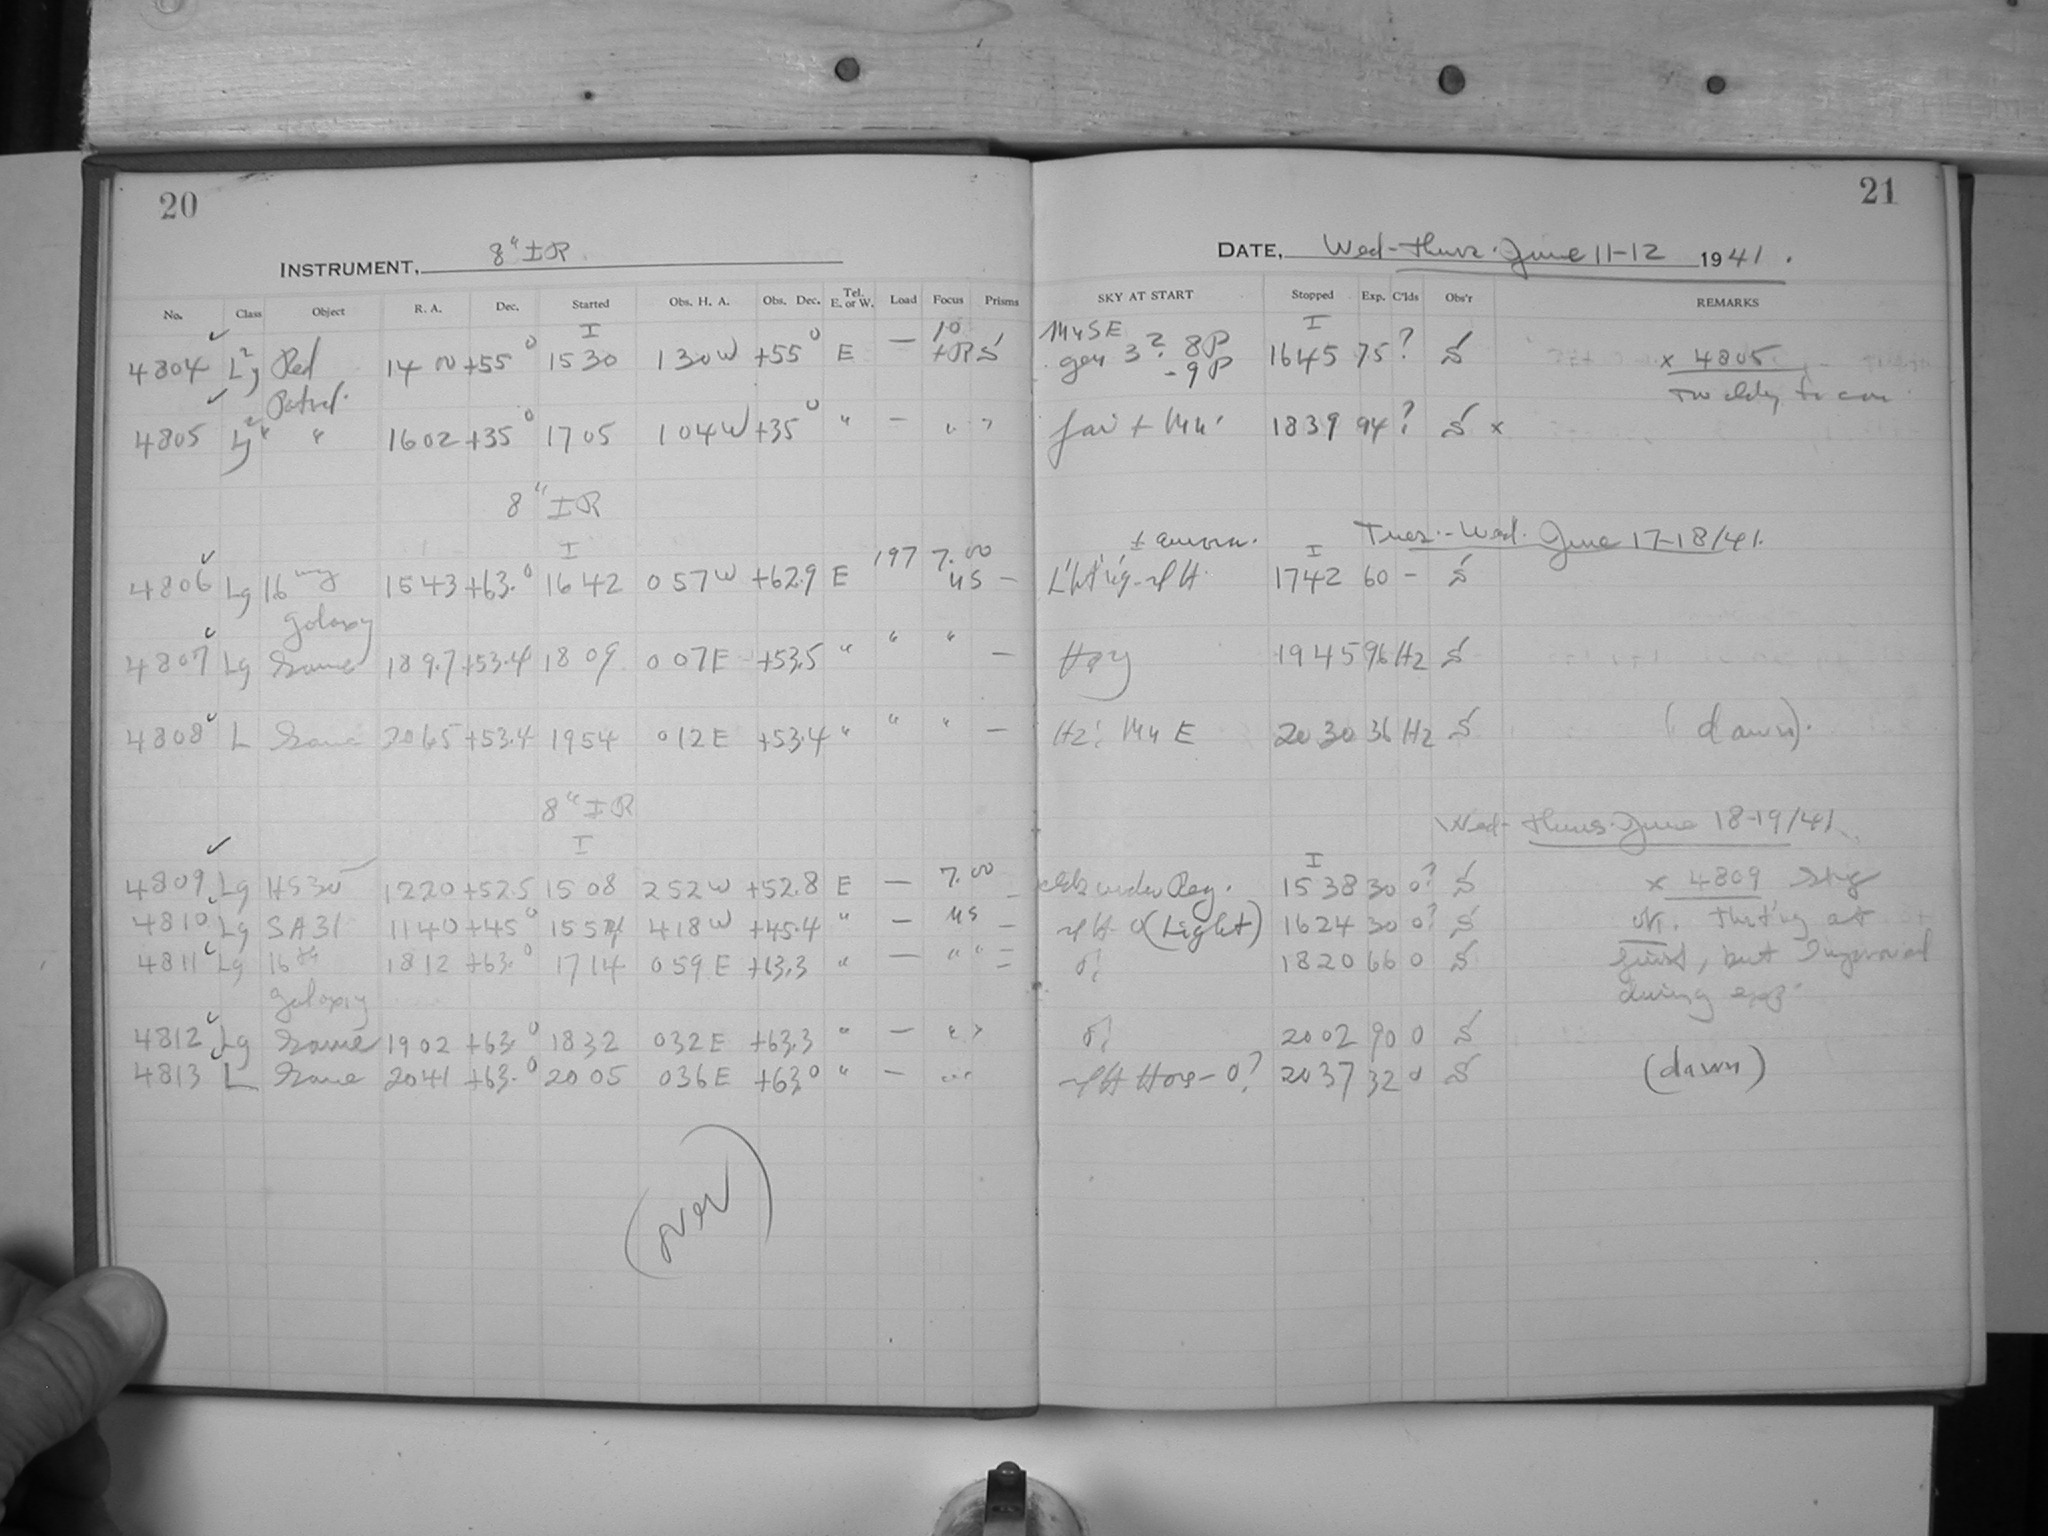 20
21
INSTRUMENT, 8" IR
DATE, Wed-Thurs. June 11-12 1941.
No. Class Object R. A. Dec. Started Obs. H. A. Obs. Dec. Tel. E. or W. Load Focus Prisms SKY AT START Stopped Exp. C'lds Obs'r REMARKS
I 10 I
4804 Red 14 +55° 1530 130W +55° E — 8P 1645 75 ? S x 4805
Patrol. - 9P
4805 " " 1602 +35° 1705 104W +35° " — 1839 94 ? S x
8" IR
Tues.-Wed. June 17-18/41.
I 197 7.00 I
4806 Lg 16 1543 +63.° 1642 057W +62.9 E — 1742 60 — S
galaxy
4807 Lg Same 189.7 +53.4 1809 007E +53.5 " " " — Hazy 1945 96 Hz S
4808 L Same 2065 +53.4 1954 012E +53.4 " " " — Hz: E 2030 36 Hz S (dawn).
8" IR
Wed-Thurs. June 18-19/41
I I
4809 Lg 1220 +52.5 1508 252W +52.8 E — 7.00 — under Reg. 1538 30 0? S x 4809
4810 Lg SA31 1140 +45° 155 418W +45.4 " — — (Light) 1624 30 0? S ok. at
4811 Lg 16th 1812 +63.° 1714 059E +63.3 " — " " — 1820 66 0 S first, but improved
galaxy during exp.
4812 Lg Same 1902 +63.° 1832 032E +63.3 " — " 2002 90 0 S
4813 L Same 2041 +63.° 2005 036E +63.0 " — 2037 32 0 S (dawn)
(over)